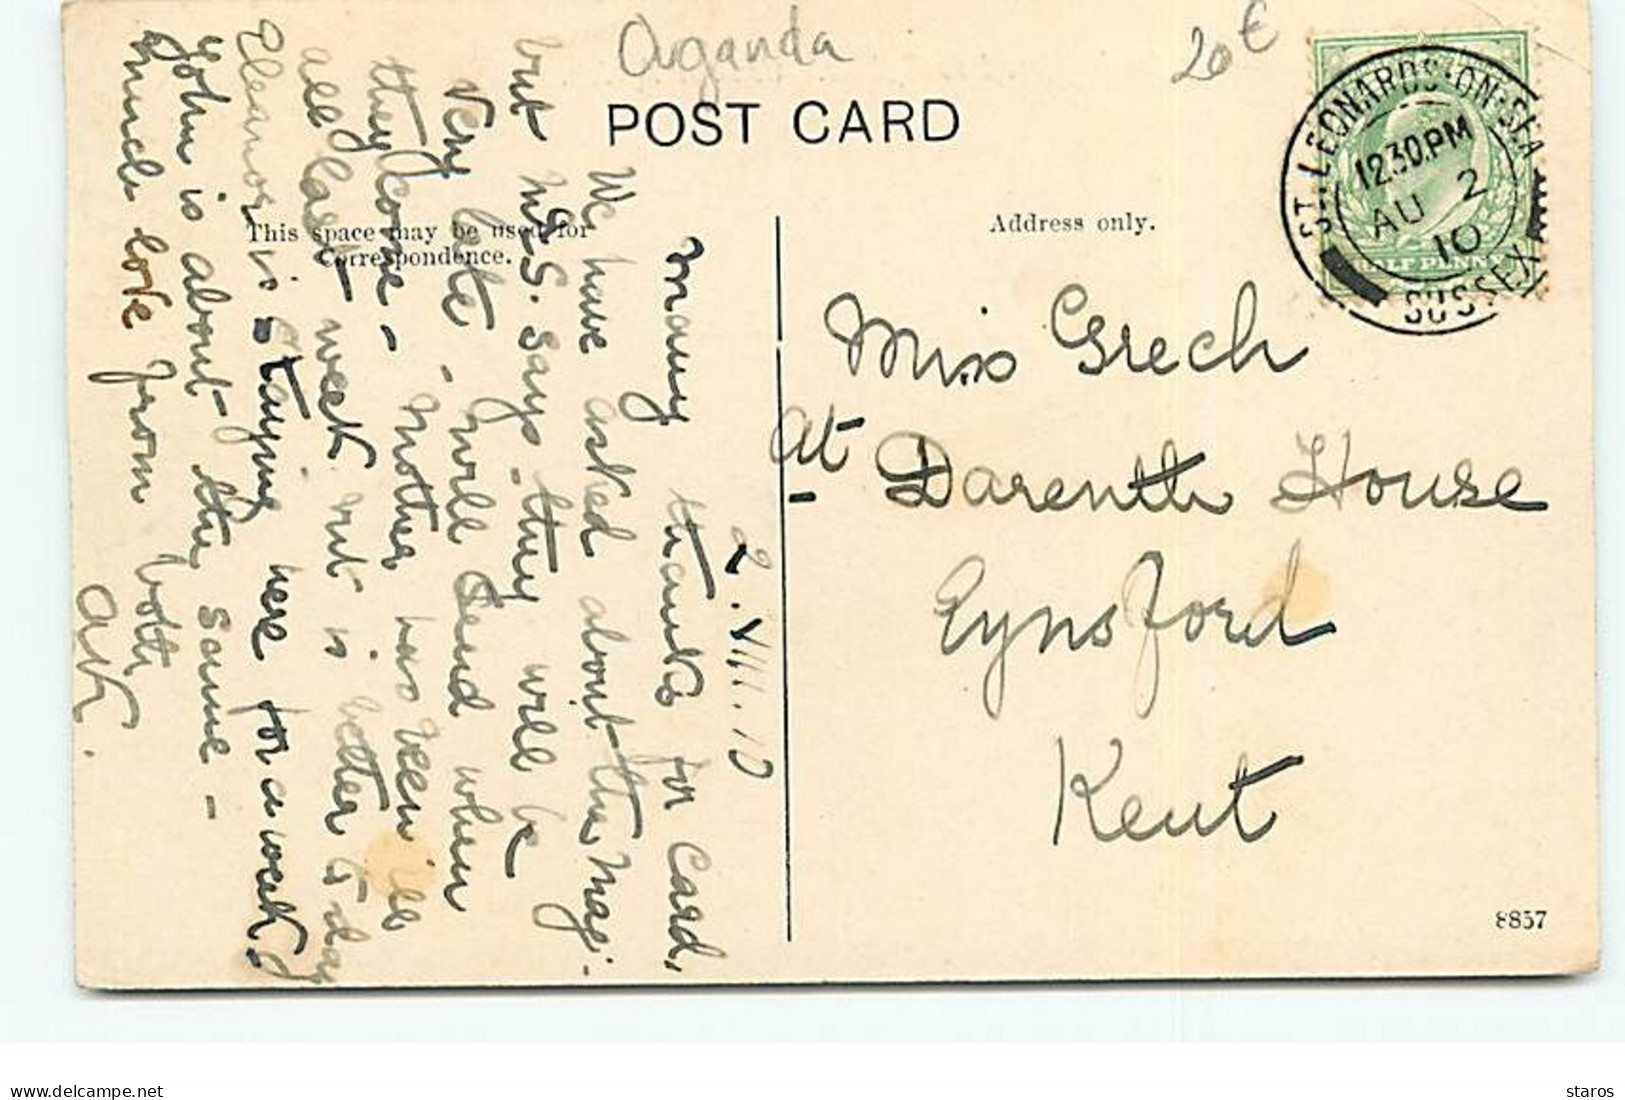 Ouganda
20€
POST CARD
ST. LEONARDS-ON-SEA
12.30.PM
AU 2
10
SUSSEX
HALF PENNY
This space may be used for
Correspondence.
Address only.
2.VIII.10
Many thanks for card,
We have asked about the Mag:
but Mrs S. says they will be
very late - will send when
they come - Mother has been ill
all last week but is better to day
Eleanor is staying here for a week &
John is about the same -
much love from both
AK.
Miss Grech
at Darenth House
Eynsford
Kent
8857
delcampe.net
staros